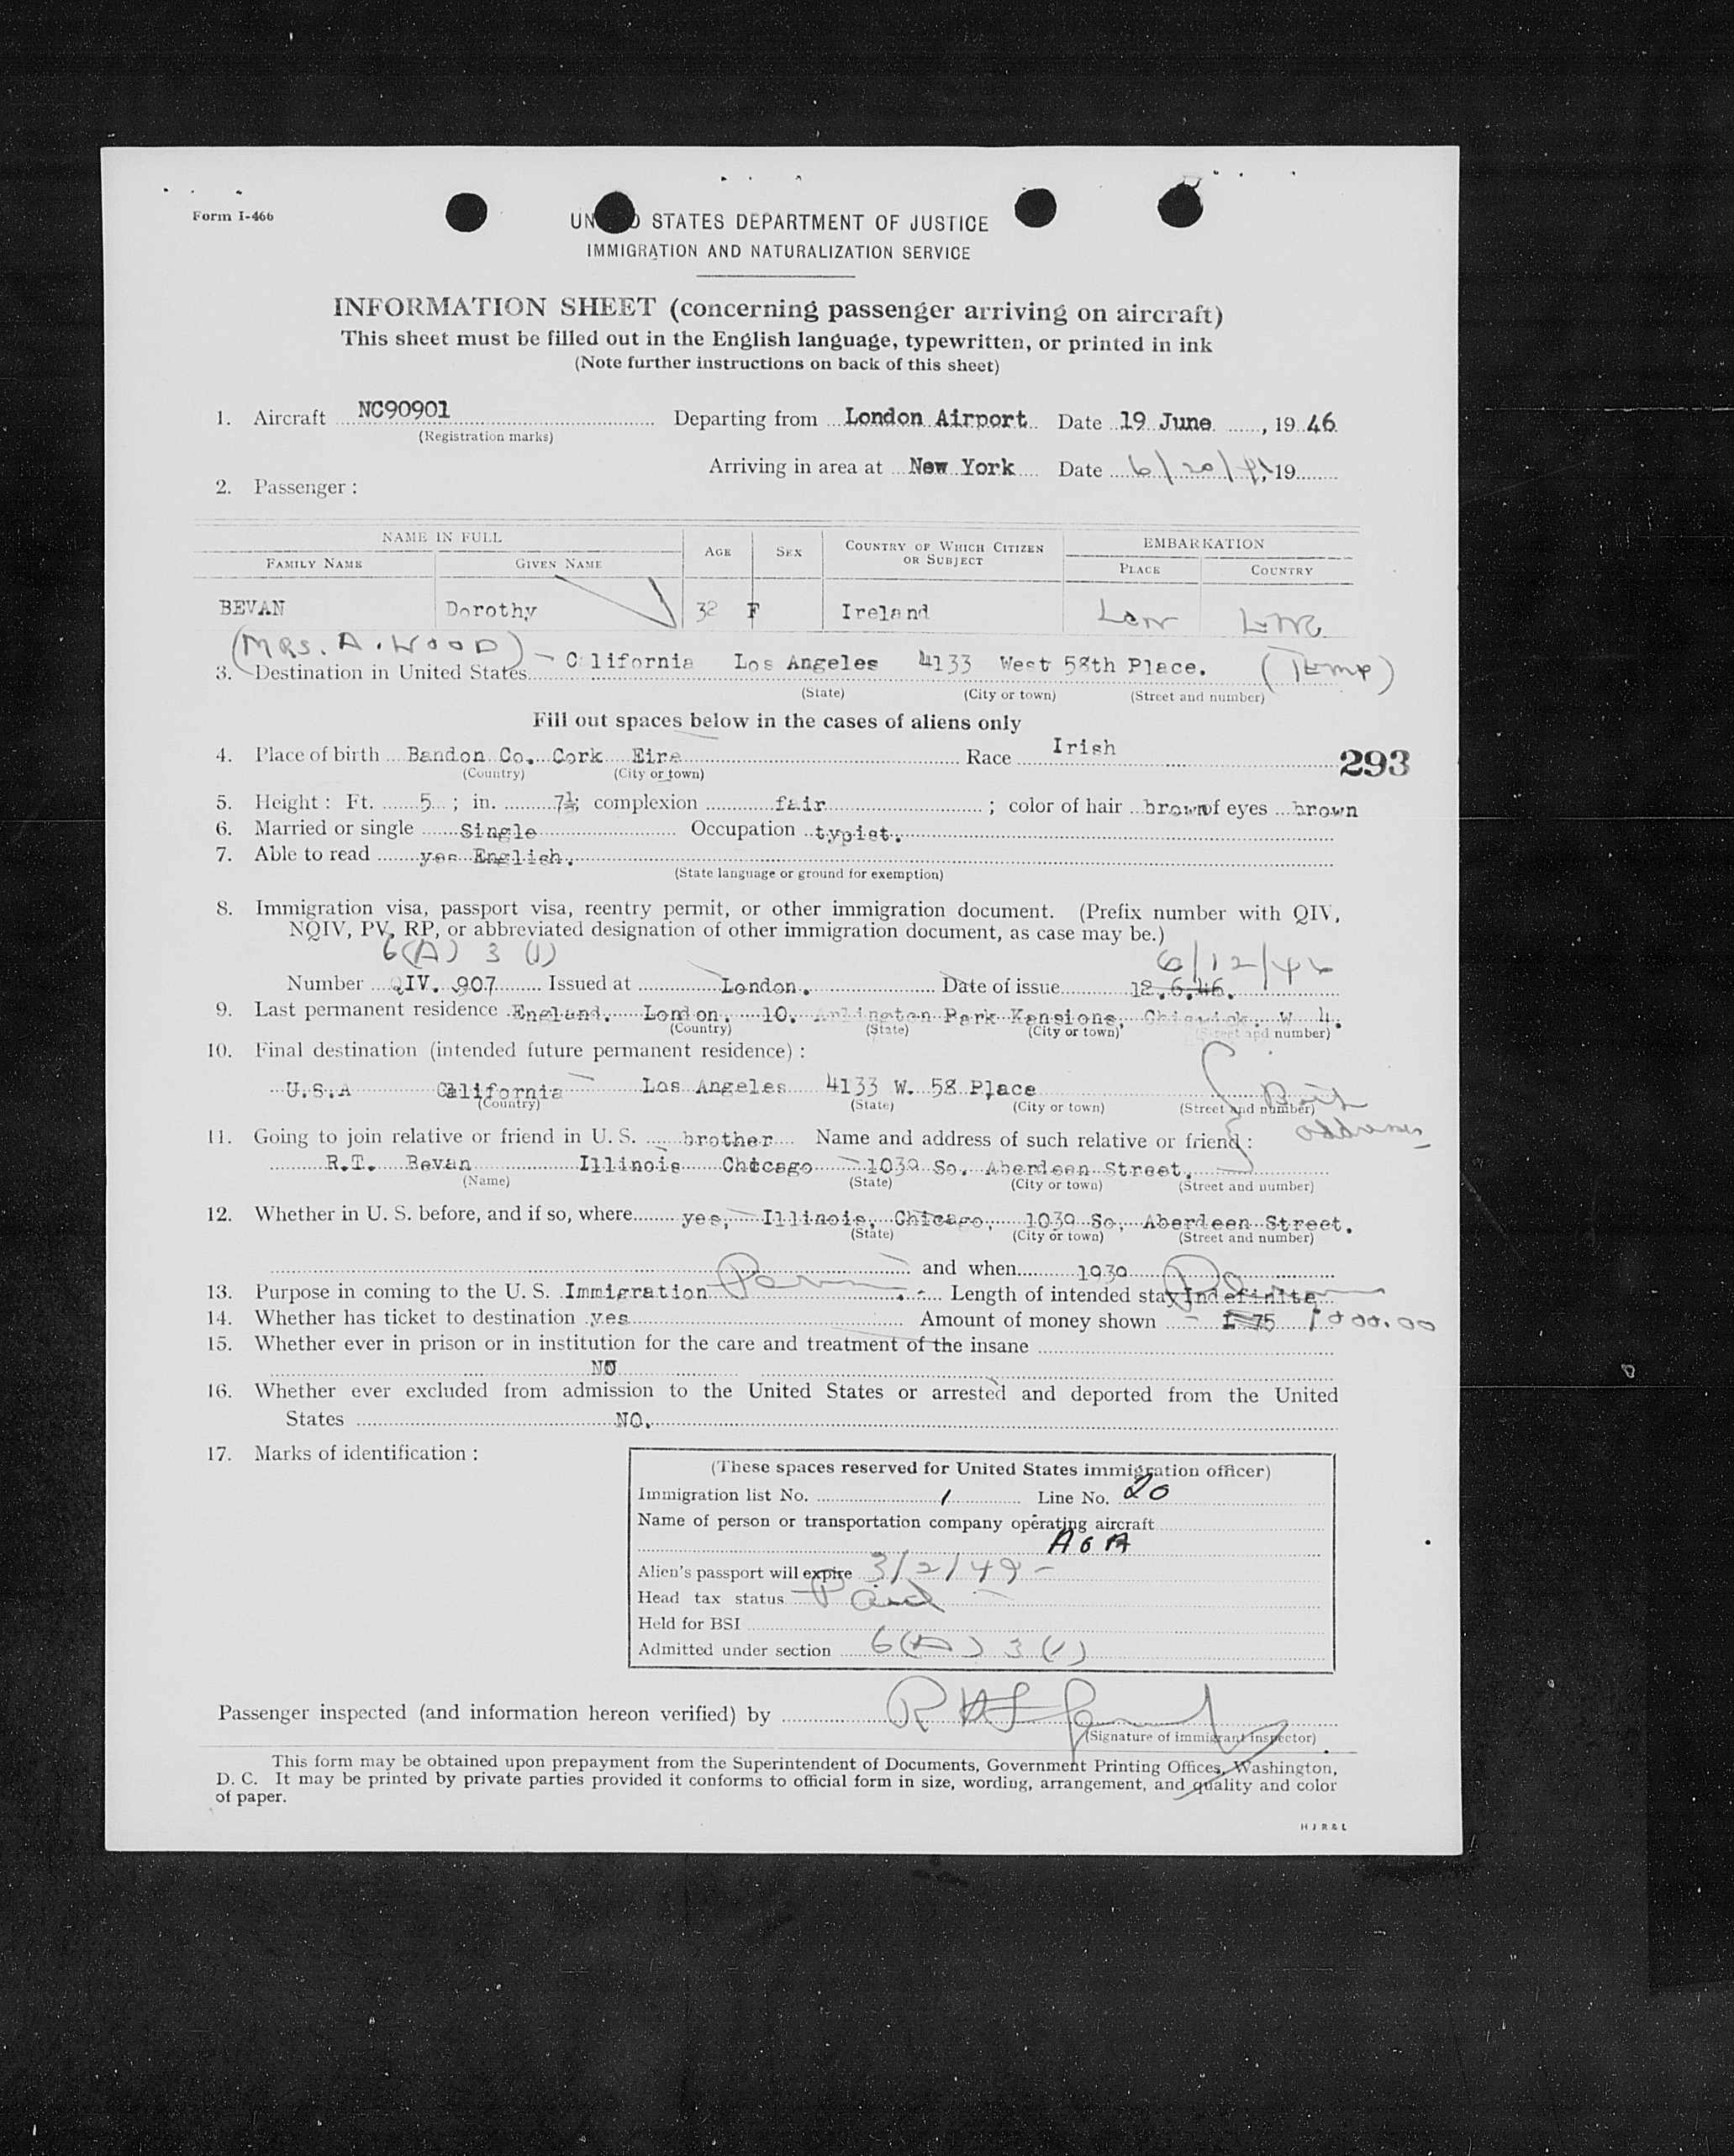 Form I-466
UNITED STATES DEPARTMENT OF JUSTICE
IMMIGRATION AND NATURALIZATION SERVICE
INFORMATION SHEET (concerning passenger arriving on aircraft)
This sheet must be filled out in the English language, typewritten, or printed in ink
(Note further instructions on back of this sheet)
1. Aircraft NC90901 Departing from London Airport Date 19 June, 19 46
(Registration marks)
Arriving in area at New York Date 6/20/ , 19
2. Passenger :
NAME IN FULL AGE SEX COUNTRY OF WHICH CITIZEN OR SUBJECT EMBARKATION
FAMILY NAME GIVEN NAME PLACE COUNTRY
BEVAN Dorothy 32 F Ireland Lon
(MRS. A. WOOD)
3. Destination in United States California Los Angeles 4133 West 58th Place. (TEMP)
(State) (City or town) (Street and number)
Fill out spaces below in the cases of aliens only
4. Place of birth Bandon Co. Cork Eire Race Irish 293
(Country) (City or town)
5. Height : Ft. 5 ; in. 7½; complexion fair ; color of hair brown of eyes brown
6. Married or single Single Occupation typist.
7. Able to read yes English.
(State language or ground for exemption)
8. Immigration visa, passport visa, reentry permit, or other immigration document. (Prefix number with QIV,
NQIV, PV, RP, or abbreviated designation of other immigration document, as case may be.)
6(A) 3 (1) 6/12/46
Number QIV. 907 Issued at London. Date of issue 12.6.46.
9. Last permanent residence England. London. 10. Arlington Park Mansions, Chiswick. W 4.
(Country) (State) (City or town) (Street and number)
10. Final destination (intended future permanent residence) :
U.S.A California Los Angeles 4133 W. 58 Place
(Country) (State) (City or town) (Street and number)
Both addresses
11. Going to join relative or friend in U. S. brother Name and address of such relative or friend :
R.T. Bevan Illinois Chicago 1039 So. Aberdeen Street.
(Name) (State) (City or town) (Street and number)
12. Whether in U. S. before, and if so, where yes, Illinois, Chicago, 1039 So, Aberdeen Street.
(State) (City or town) (Street and number)
and when 1939
13. Purpose in coming to the U. S. Immigration Perm. Length of intended stay Indefinite
14. Whether has ticket to destination yes Amount of money shown £ 75 1000.00
15. Whether ever in prison or in institution for the care and treatment of the insane
NO
16. Whether ever excluded from admission to the United States or arrested and deported from the United
States NO.
17. Marks of identification :
(These spaces reserved for United States immigration officer)
Immigration list No. 1 Line No. 20
Name of person or transportation company operating aircraft
A O A
Alien's passport will expire 3/2/49 -
Head tax status Paid
Held for BSI
Admitted under section 6(A) 3(1)
Passenger inspected (and information hereon verified) by
(Signature of immigrant inspector)
This form may be obtained upon prepayment from the Superintendent of Documents, Government Printing Offices, Washington,
D. C. It may be printed by private parties provided it conforms to official form in size, wording, arrangement, and quality and color
of paper.
H J R & L